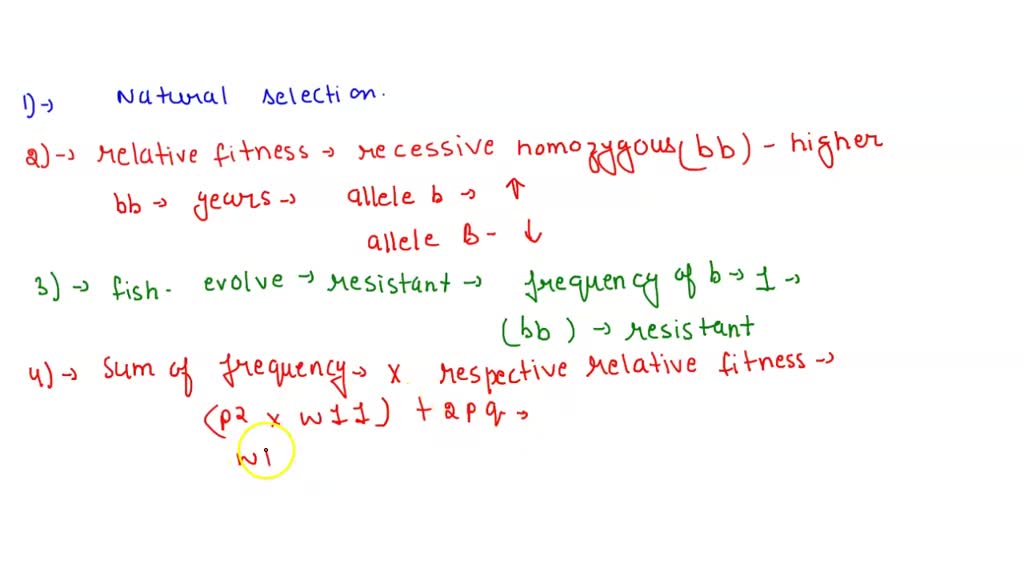 1)→ Natural selection.
2)→ relative fitness → recessive homozygous (bb) - higher
bb → years → allele b → ↑
allele B - ↓
3)→ fish - evolve → resistant → frequency of b → 1 →
(bb) → resistant
4)→ Sum of frequency → x respective relative fitness →
(p2 x w11) + 2pq →
wi